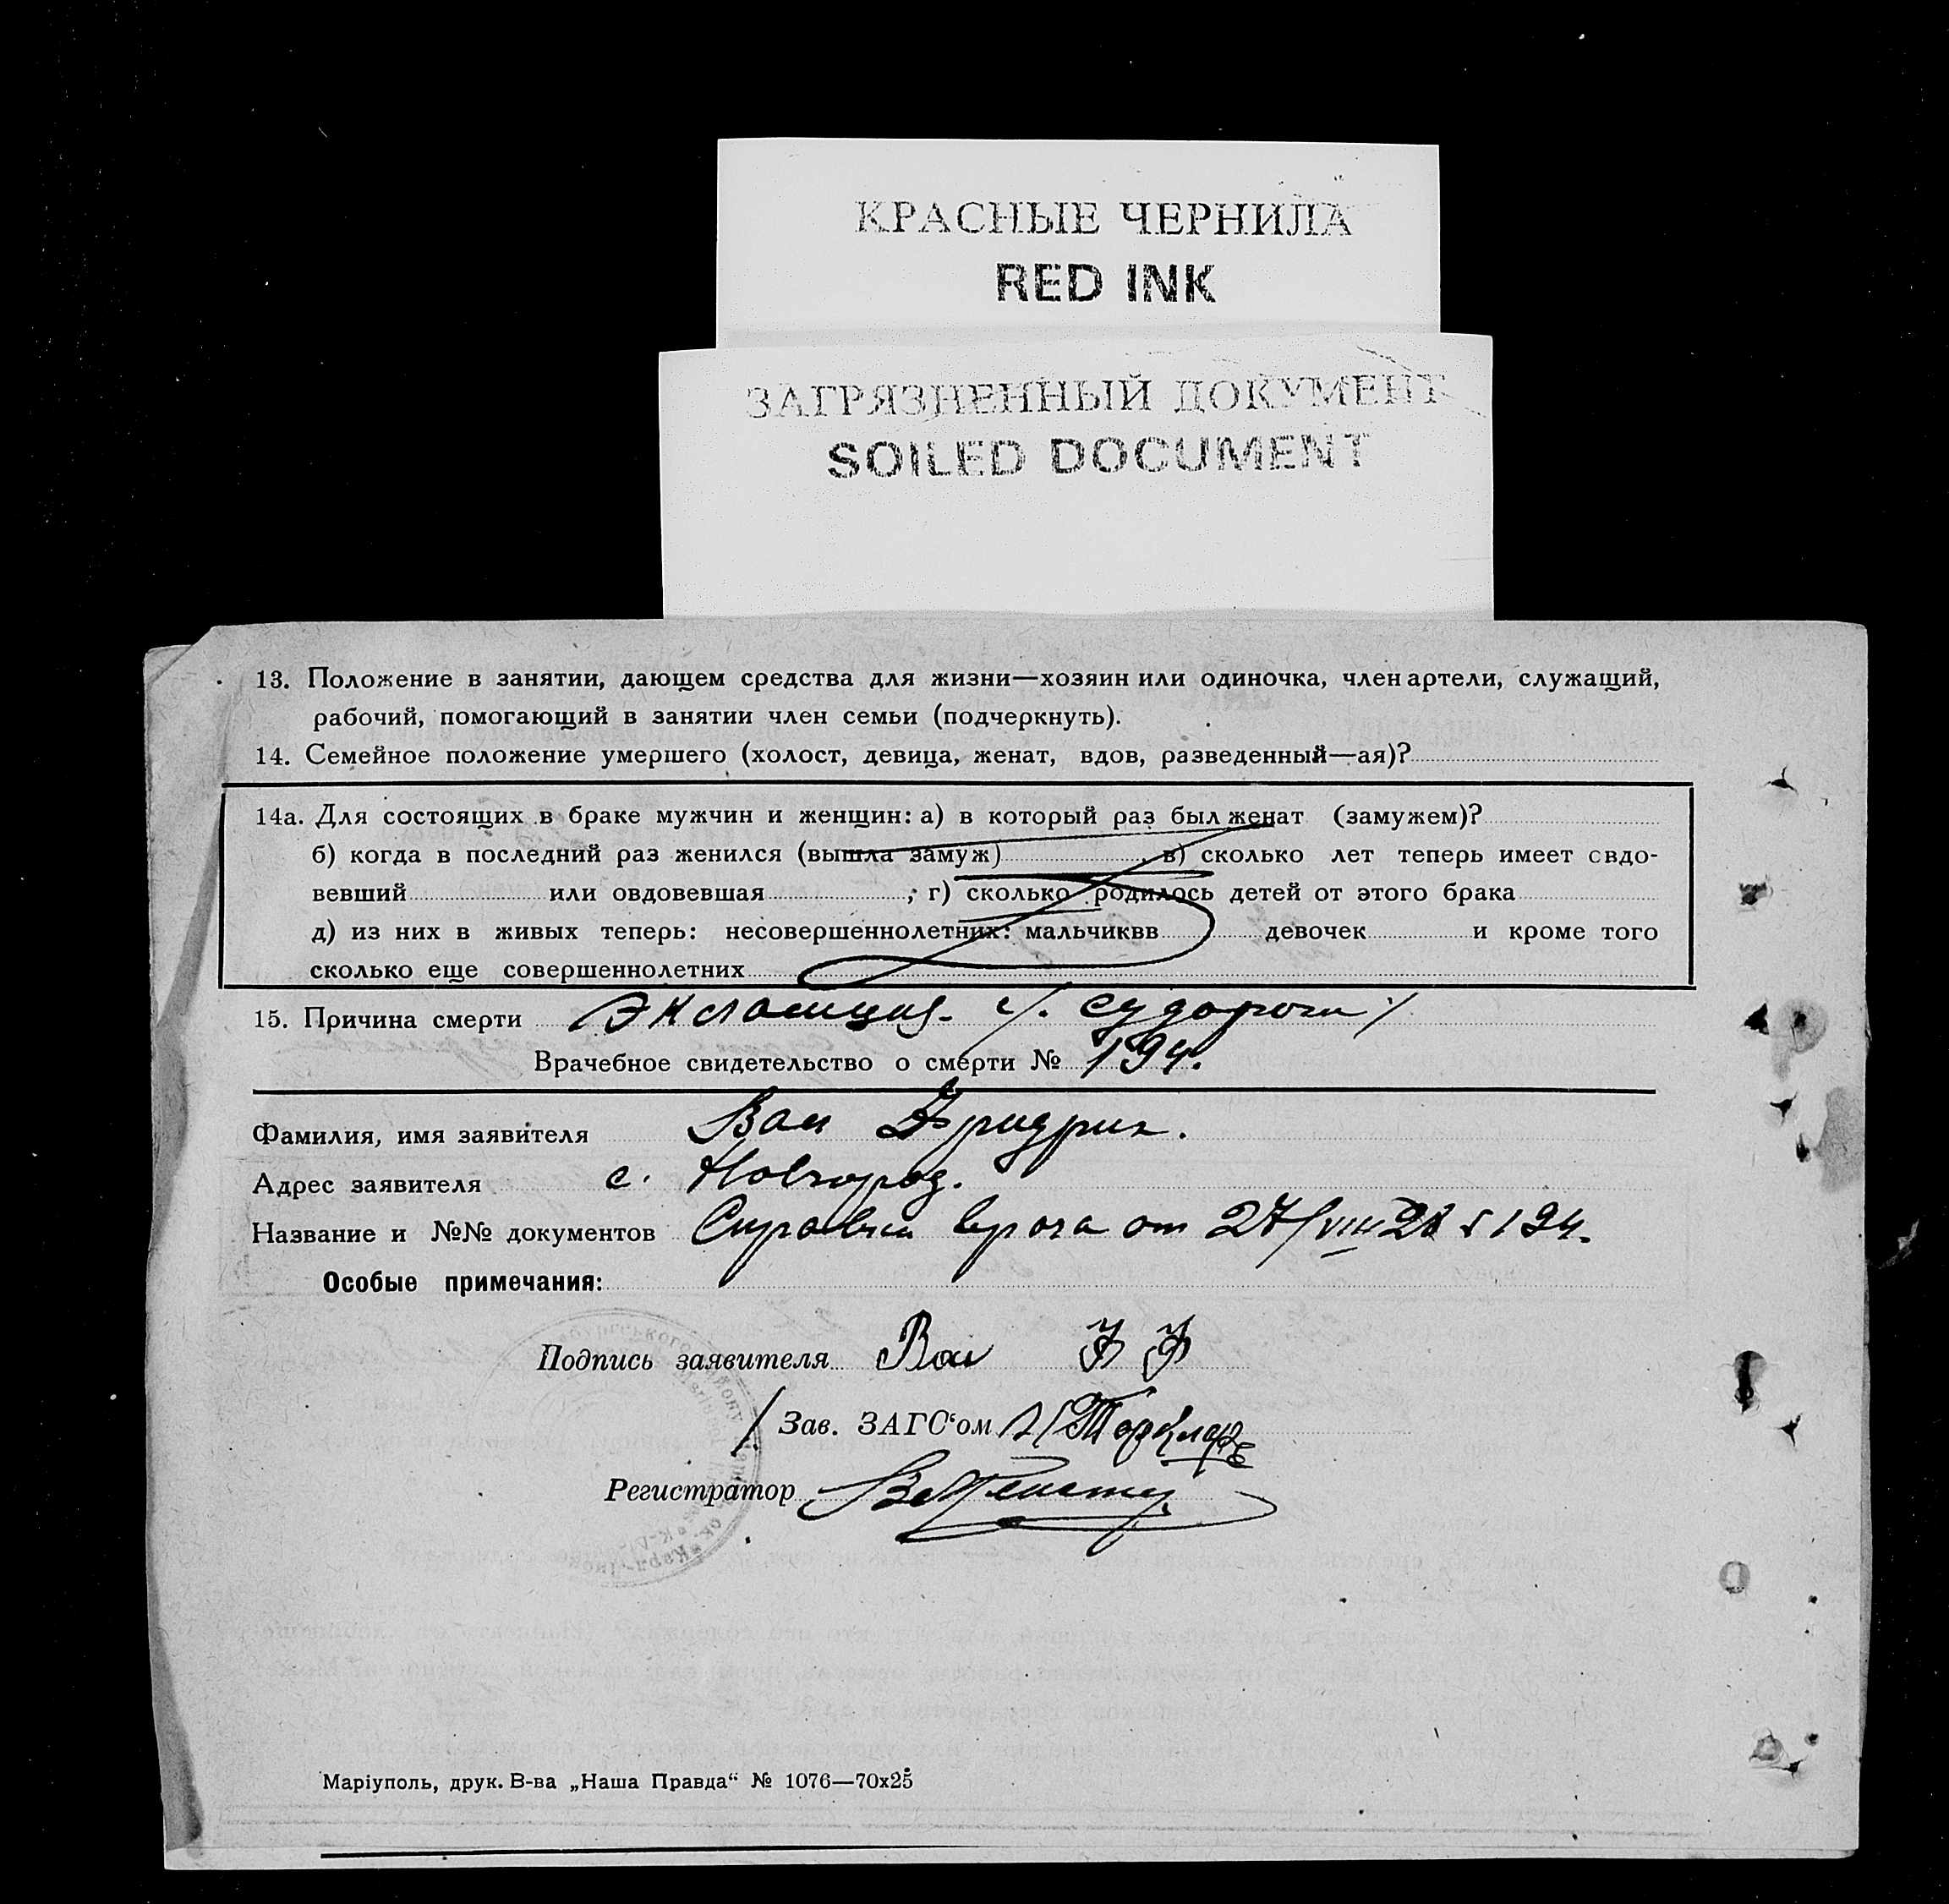 КРАСНЫЕ ЧЕРНИЛА
RED INK
ЗАГРЯЗНЕННЫЙ ДОКУМЕНТ
SOILED DOCUMENT
13. Положение в занятии, дающем средства для жизни—хозяин или одиночка, член артели, служащий,
рабочий, помогающий в занятии член семьи (подчеркнуть).
14. Семейное положение умершего (холост, девица, женат, вдов, разведенный—ая)?
14а. Для состоящих в браке мужчин и женщин: а) в который раз был женат (замужем)?
б) когда в последний раз женился (вышла замуж) , в) сколько лет теперь имеет овдо-
вевший или овдовевшая ; г) сколько родилось детей от этого брака
д) из них в живых теперь: несовершеннолетних: мальчиквв девочек и кроме того
сколько еще совершеннолетних
15. Причина смерти Экламция. /. судороги ./
Врачебное свидетельство о смерти № 194.
Фамилия, имя заявителя Ван Фридрих.
Адрес заявителя с. Новгород.
Название и №№ документов Справка врача от 27/VIII 28 194.
Особые примечания:
Подпись заявителя
Зав. ЗАГС'ом
Регистратор
Маріуполь, друк. В-ва „Наша Правда“ № 1076—70х25